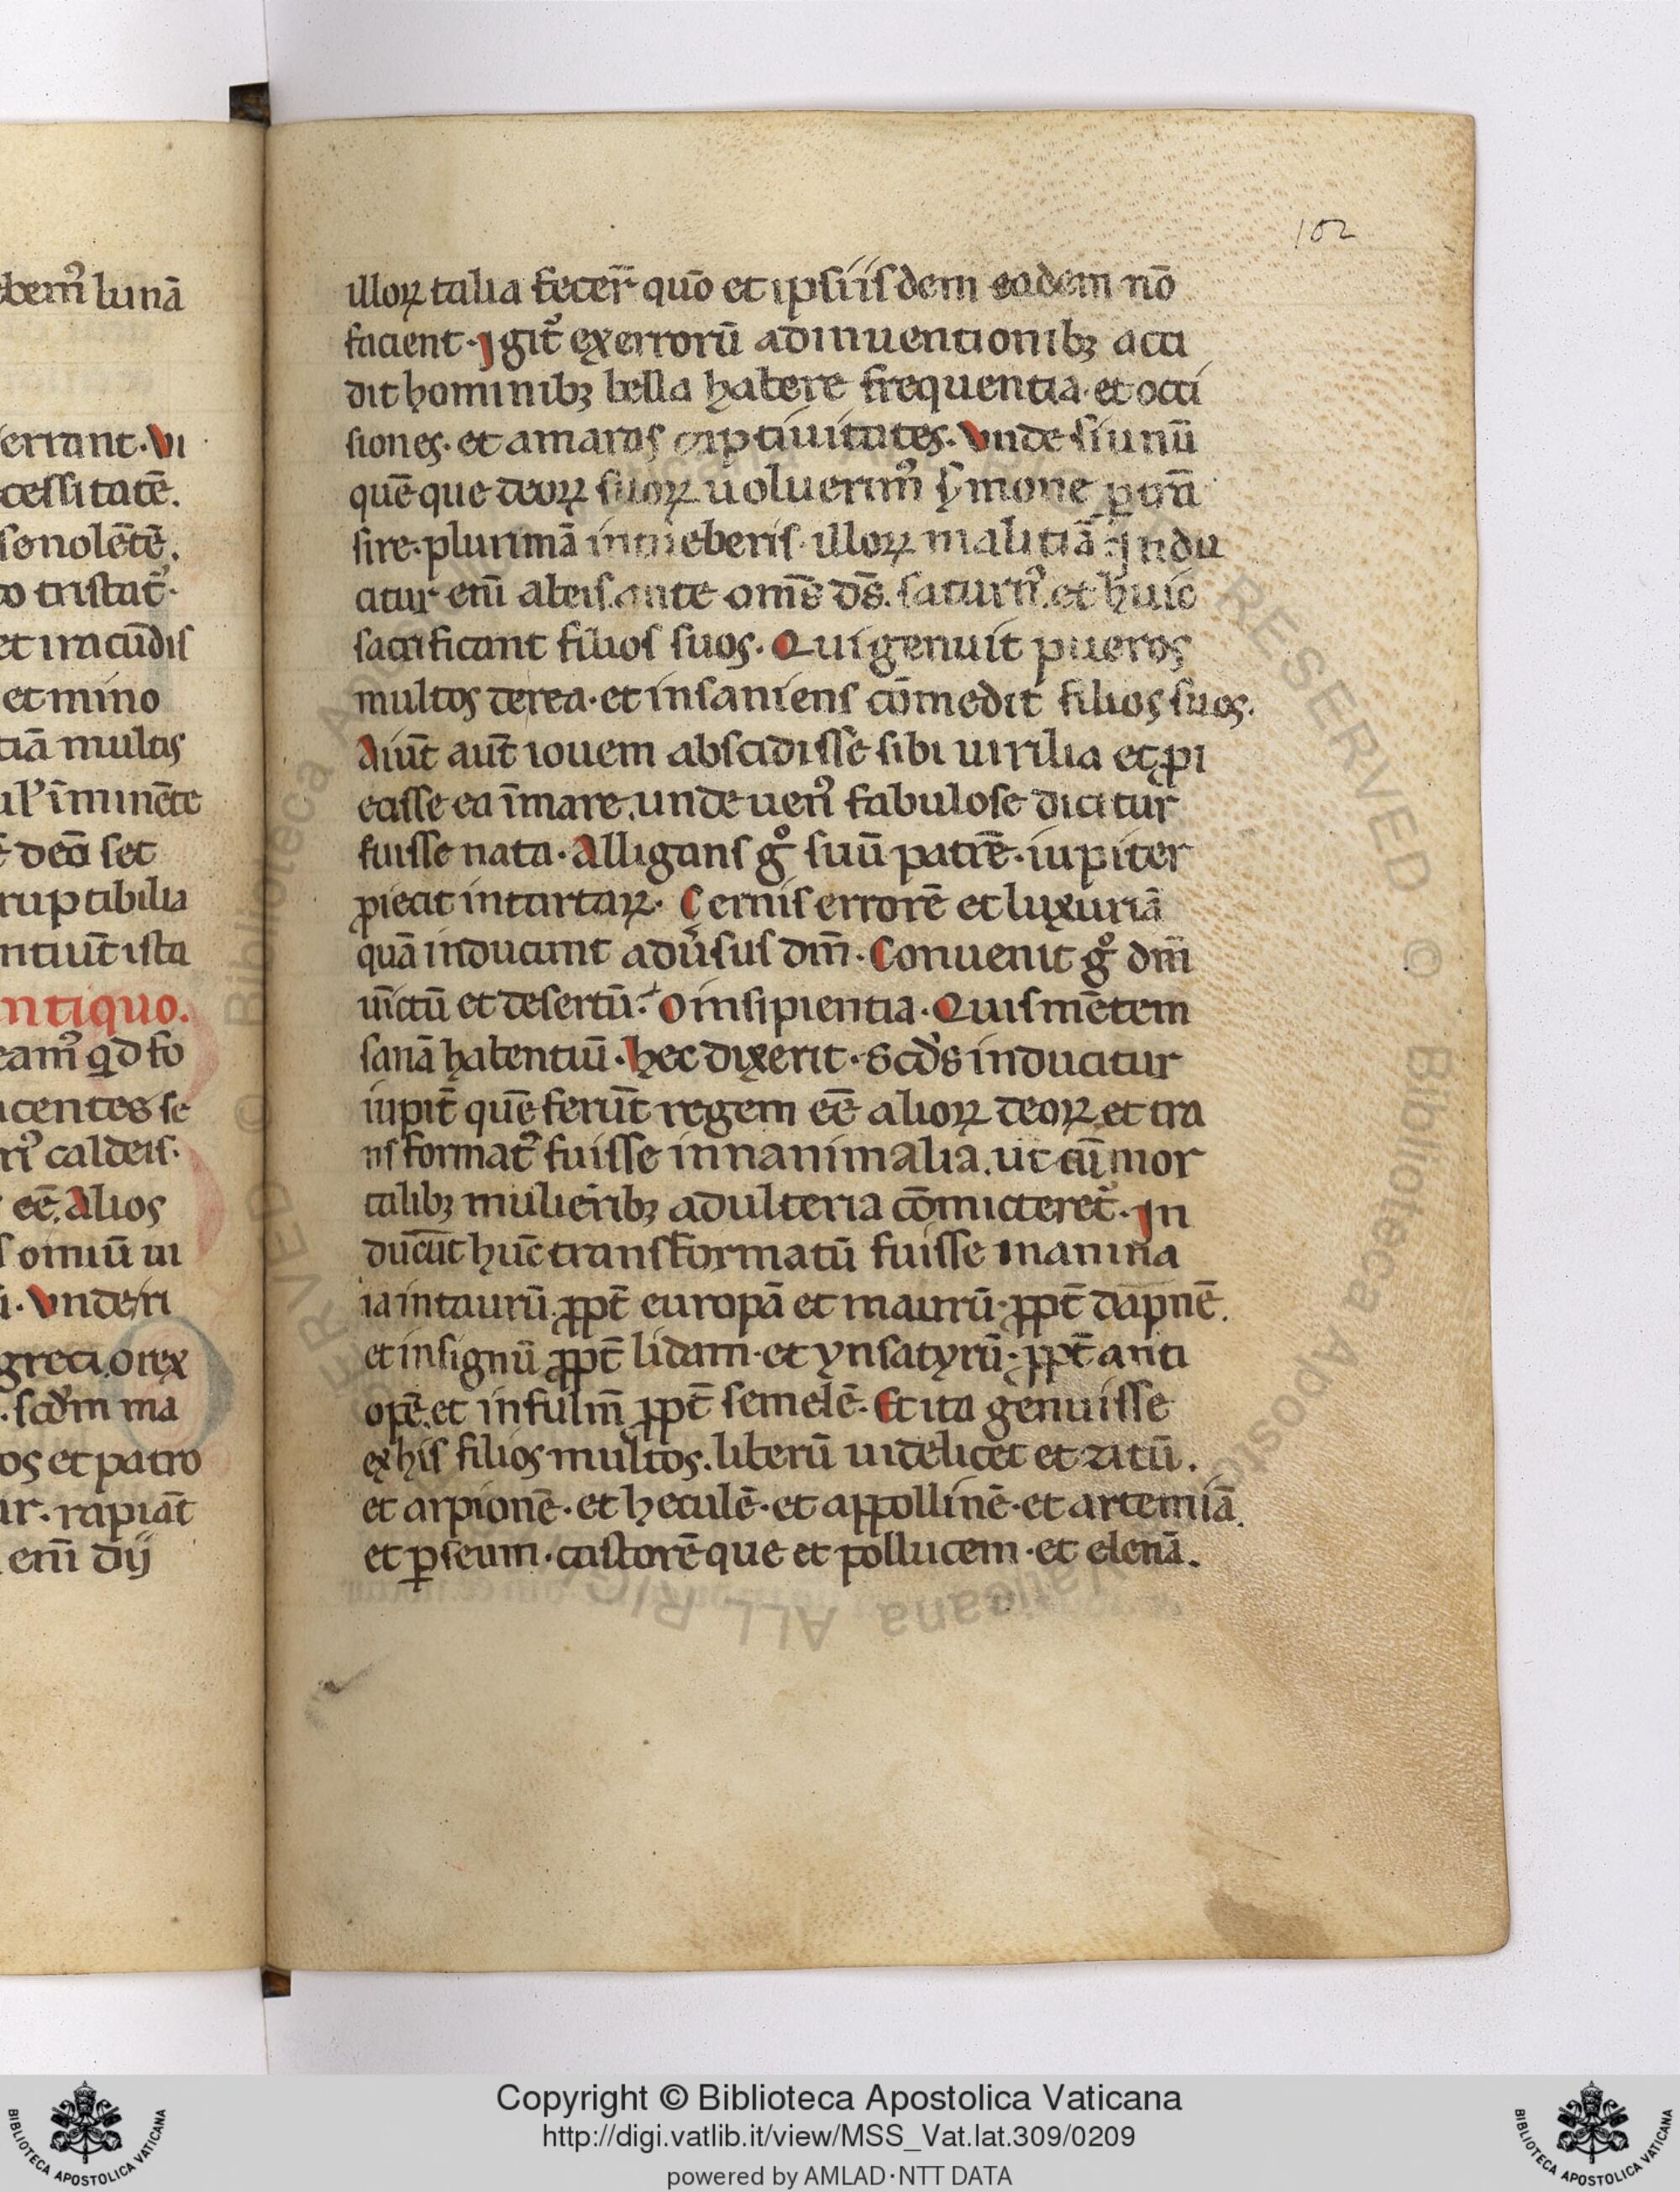 102
bem᷒ lunā
errant. Vi
cessitatē.
sonolētē.
tristat᷒.
et iracūdis
et mino
tiā multis
ul' īminēte
deā set
ruptibilia
ntiūt ista
ntiquo.
eam᷒ qd fo
centes se
ri᷒ caldeis.
eē. Alios
s omiū ui
. Vnde ri
greci. o rex
. scd̄m ma
os et patro
ur. rapiāt
eni̅ dij
illoꝝ talia fecer̄ quō et ipsi isdem eadem nō
facient. Igit᷒ ex errorū adinuentionibꝫ acci
dit hominibꝫ bella habere frequentia. et occi
siones. et amaras captiuitates. Vnde si unū
quēque deoꝝ suoꝝ uoluerim᷒ s̾mone ꝑtrāi
sire. plurimā intueberis. illoꝝ malitiā. Indu
citur eni̅ ab eis. ante om̄s d̄s. saturn᷒. et huic
sacrificant filios suos. Qui genuit pueros
multos de rea. et insaniens cōmedit filios suos.
Aiūt aūt iouem abscidisse sibi uirilia et ꝓi
ecisse ea ī mare. unde uen᷒ fabulose dicitur
fuisse nata. Alligans gͦ suū patrē. iupiter
ꝓiecit in tartaꝝ. Cernis errorē et luxuriā
quā inducunt adu̾sus dm̄. Conuenit gͦ dm̄
uīctū et desertū. O insipientia. Quis mētem
sanā habentiū. hec dixerit. Scd̄s inducitur
iupit̄ quē ferūt regem eē alioꝝ deoꝝ. et tra
nsformat᷒ fuisse innanimalia. ut cū mor
talibꝫ mulieribꝫ adulteria cōmicteret᷒. In
ducūt hūc transformatū fuisse inanima
ia in taurū. ꝓpt̄ europā et maurū. ꝓpt̄ dapnē.
et in signū ꝓpt̄ lidam. et yn satyrū. ꝓpt̄ anti
opē. et in fulm̄ ꝓpt̄ semelē. Et ita genuisse
ex his filios multos. liberū uidelicet et zitū.
et arpionē. et heculē. et appollinē. et artemiā.
et ꝑseum. castorēque et pollucem. et elenā.
© Biblioteca Apostolica Vaticana ALL RIGHTS RESERVED
Copyright © Biblioteca Apostolica Vaticana
http://digi.vatlib.it/view/MSS_Vat.lat.309/0209
powered by AMLAD·NTT DATA
BIBLIOTECA APOSTOLICA VATICANA
BIBLIOTECA APOSTOLICA VATICANA